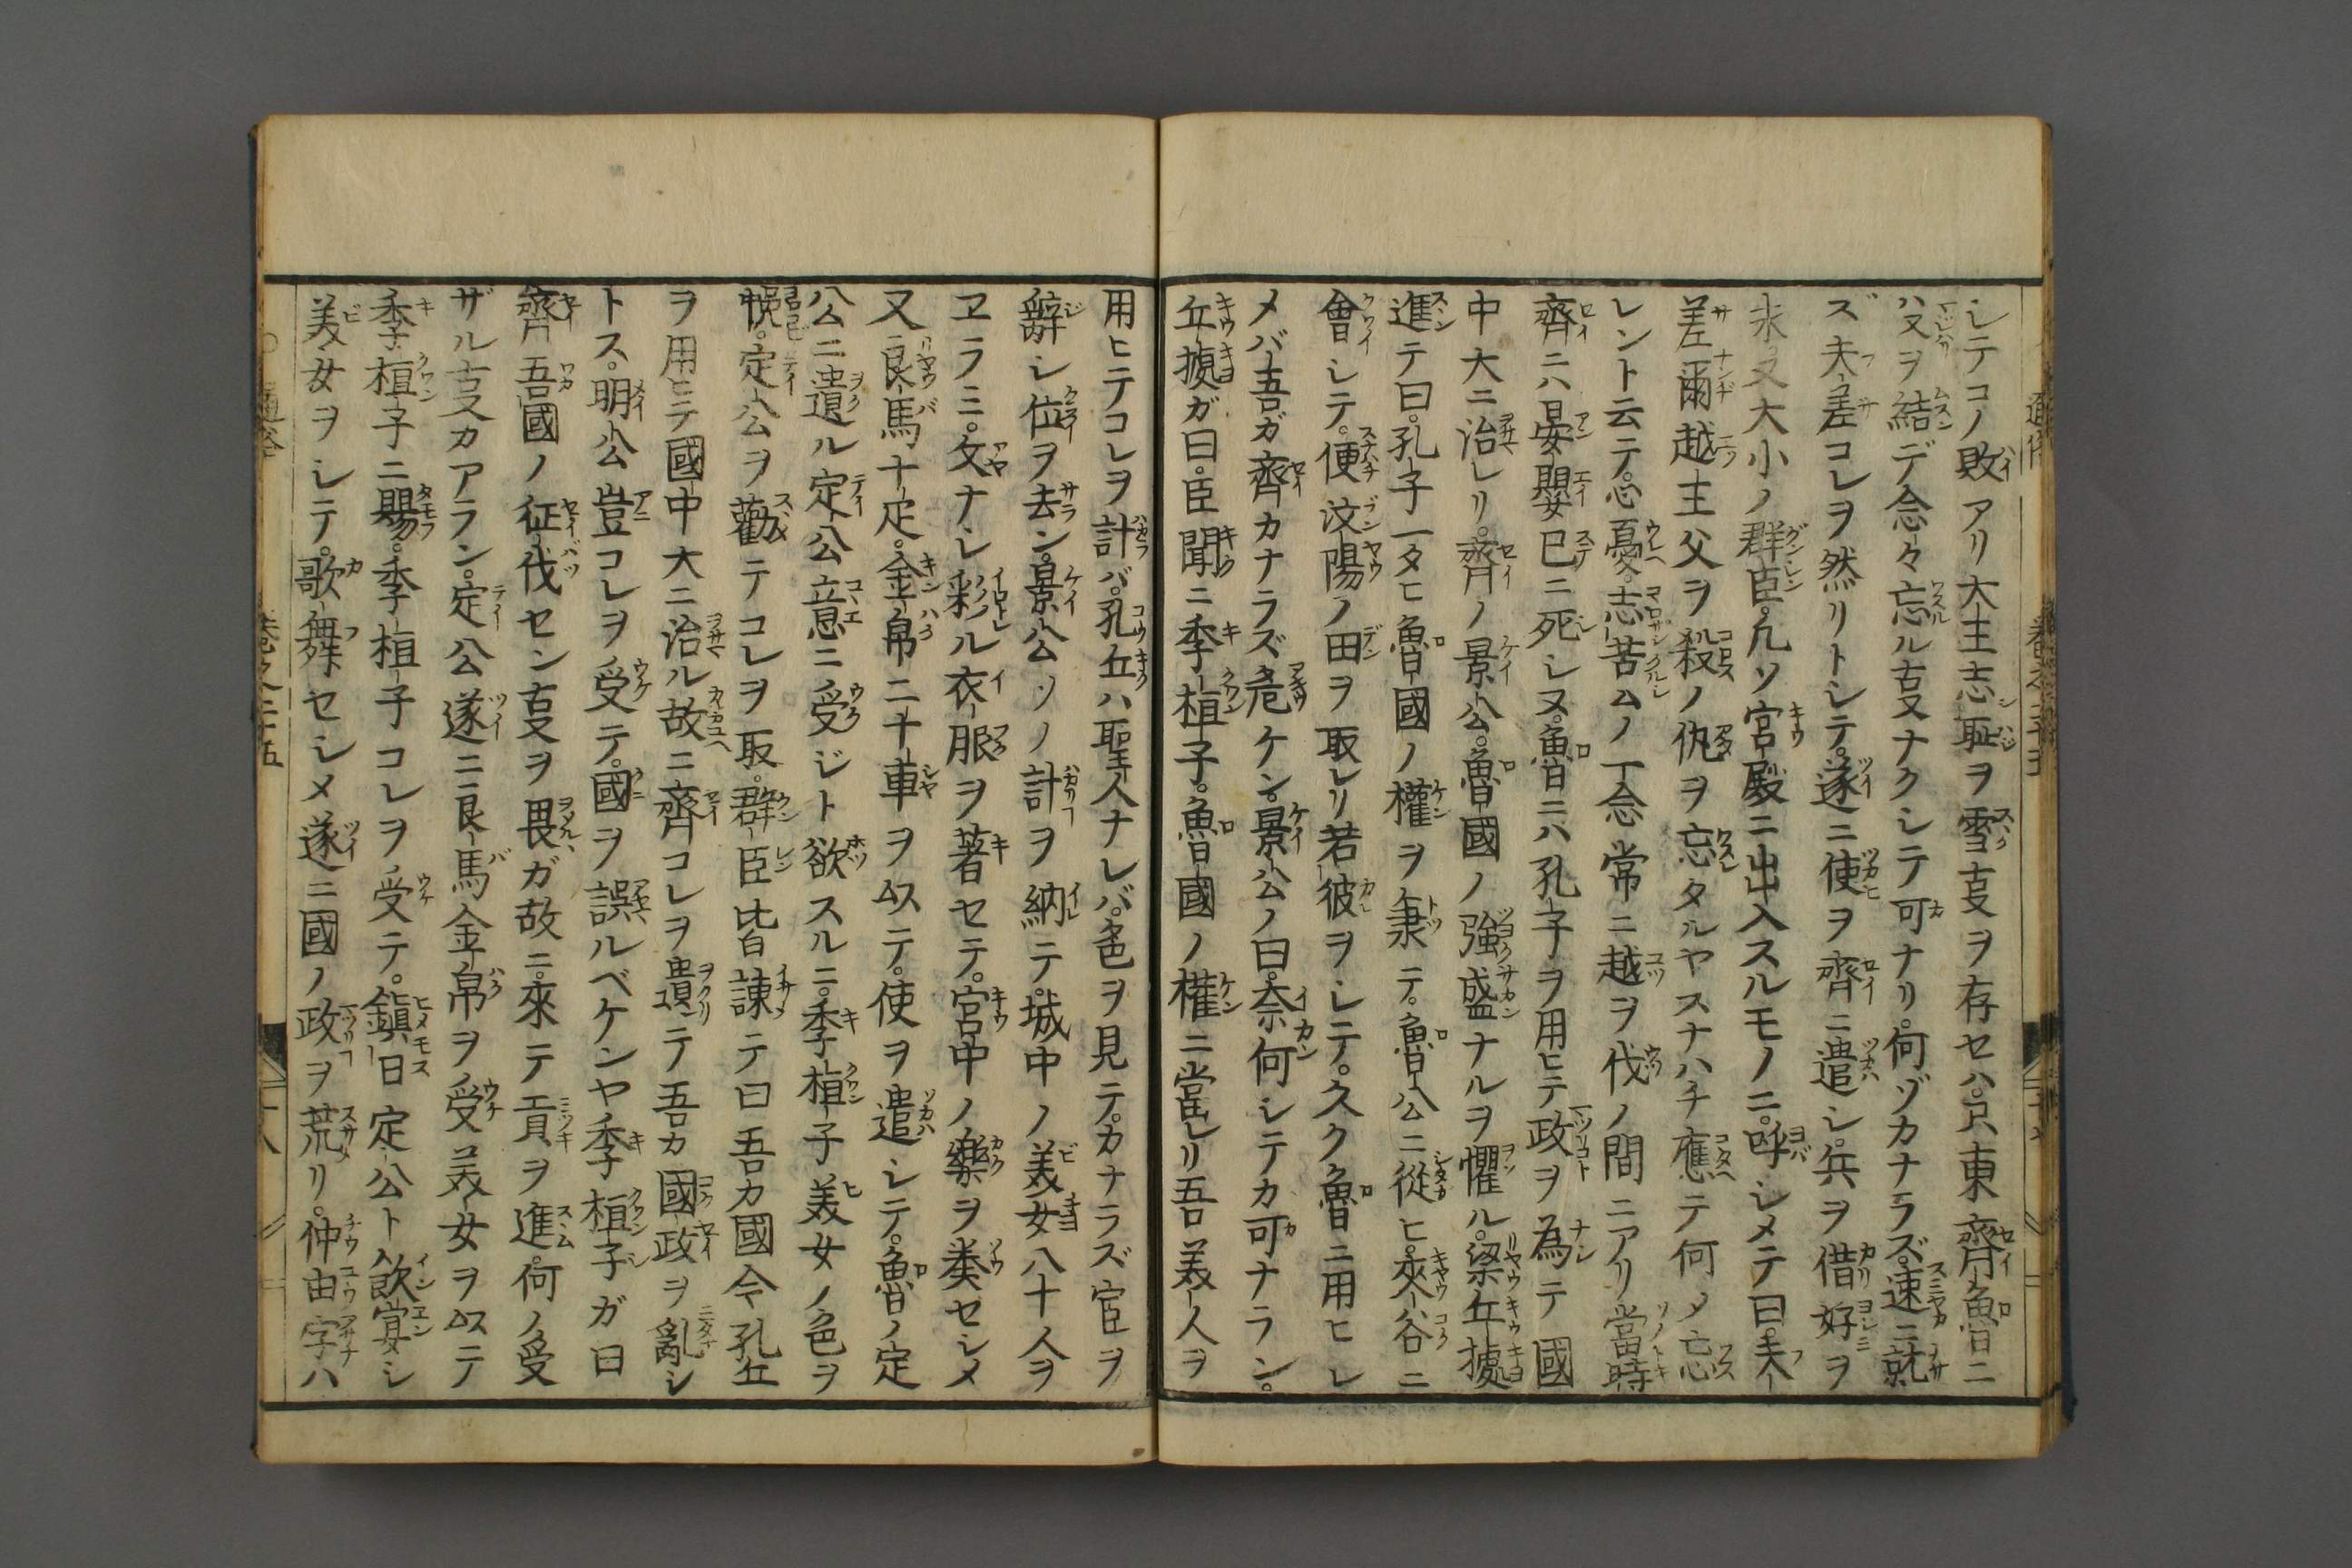 シテコノ敗アリ大王志恥ヲ雪叓ヲ存セハ只東齊魯ニ
ハ交ヲ結デ念々忘ル叓ナクシテ可ナリ。何ゾカナラズ速ニ就
ズ夫差コレヲ然リトシテ。遂ニ使ヲ齊ニ遣シ。兵ヲ借好ヲ
求又大小ノ群臣。凡ソ宮殿ニ出入スルモノニ。呼シメテ曰。夫
差爾越王父ヲ殺ノ仇ヲ忘タルヤスナハチ應テ何ノ忘
レント云テ。心憂。志苦ムノ一念常ニ越ヲ伐ノ間ニアリ當時
齊ニハ晏嬰已ニ死シヌ。魯ニハ孔子ヲ用ヒテ政ヲ為テ國
中大ニ治レリ。齊ノ景公。魯國ノ強盛ナルヲ懼ル。梁丘據
進テ曰。孔子一タヒ魯國ノ權ヲ秉テ。魯公ニ從ヒ。夾谷ニ
會シテ。便汶陽ノ田ヲ取レリ若彼ヲシテ。久ク魯ニ用ヒレ
メバ吾ガ齊カナラズ危ケン。景公ノ曰。奈何シテカ可ナラン。
丘據ガ曰。臣聞ニ季桓子。魯國ノ權ニ當レリ吾美人ヲ
用ヒテコレヲ計バ。孔丘ハ聖人ナレバ。色ヲ見テ。カナラズ宦ヲ
辭シ位ヲ去ン。景公ソノ計ヲ納テ。城中ノ美女八十人ヲ
ヱラミ。文ナシ彩ル衣服ヲ著セテ。宮中ノ樂ヲ奏セシメ
又良馬十疋。金帛二十車ヲ以テ。使ヲ遣シテ。魯ノ定
公ニ遺ル定公意ニ受ジト欲スルニ。季桓子美女ノ色ヲ
悦。定公ヲ勸テコレヲ取。群臣皆諫テ曰吾カ國今孔丘
ヲ用ヒテ國中大ニ治ル故ニ齊コレヲ遺テ吾カ國政ヲ亂シ
トス。明公豈コレヲ受テ。國ヲ誤ルベケンヤ季桓子ガ曰
齊吾國ノ征伐セン叓ヲ畏ガ故ニ。來テ貢ヲ進。何ノ受
ザル叓カアラン。定公遂ニ良馬金帛ヲ受美女ヲ以テ
季桓子ニ賜。季桓子コレヲ受テ。鎮日定公ト飲宴シ
美女ヲシテ。歌舞セシメ遂ニ國ノ政ヲ荒リ。仲由字ハ